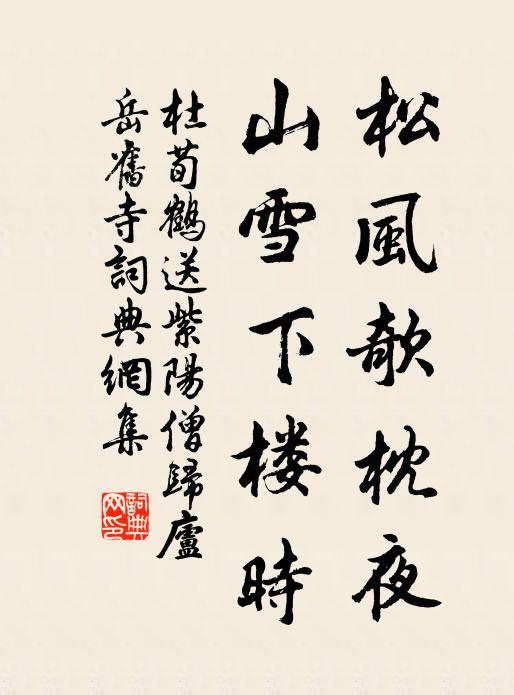 松風欹枕夜
山雪下楼時
杜荀鶴送紫陽僧歸廬
岳舊寺詞典網集
詞典网印